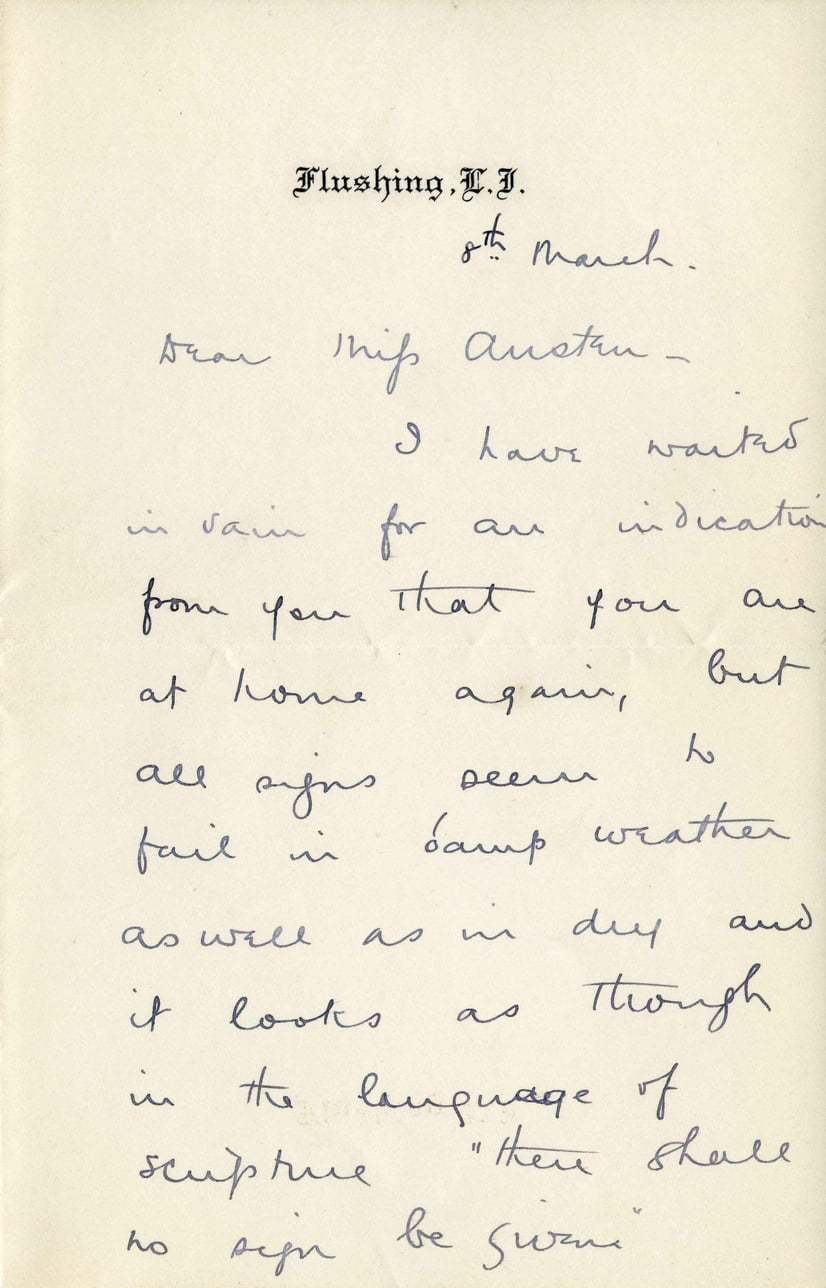 Flushing, L.I.
8th March.
Dear Miss Austen –
I have waited
in vain for an indication
from you that you are
at home again, but
all signs seem to
fail in damp weather
as well as in dry and
it looks as though
in the language of
scripture "there shall
no sign be given"